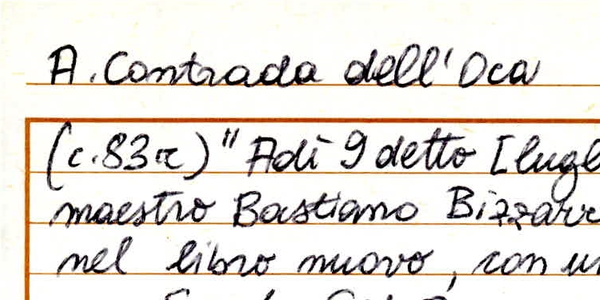 A. Contrada dell'Oca
(c.83r) "Adì 9 detto [lugl
maestro Bastiano Bizzarr
nel libro nuovo, con un